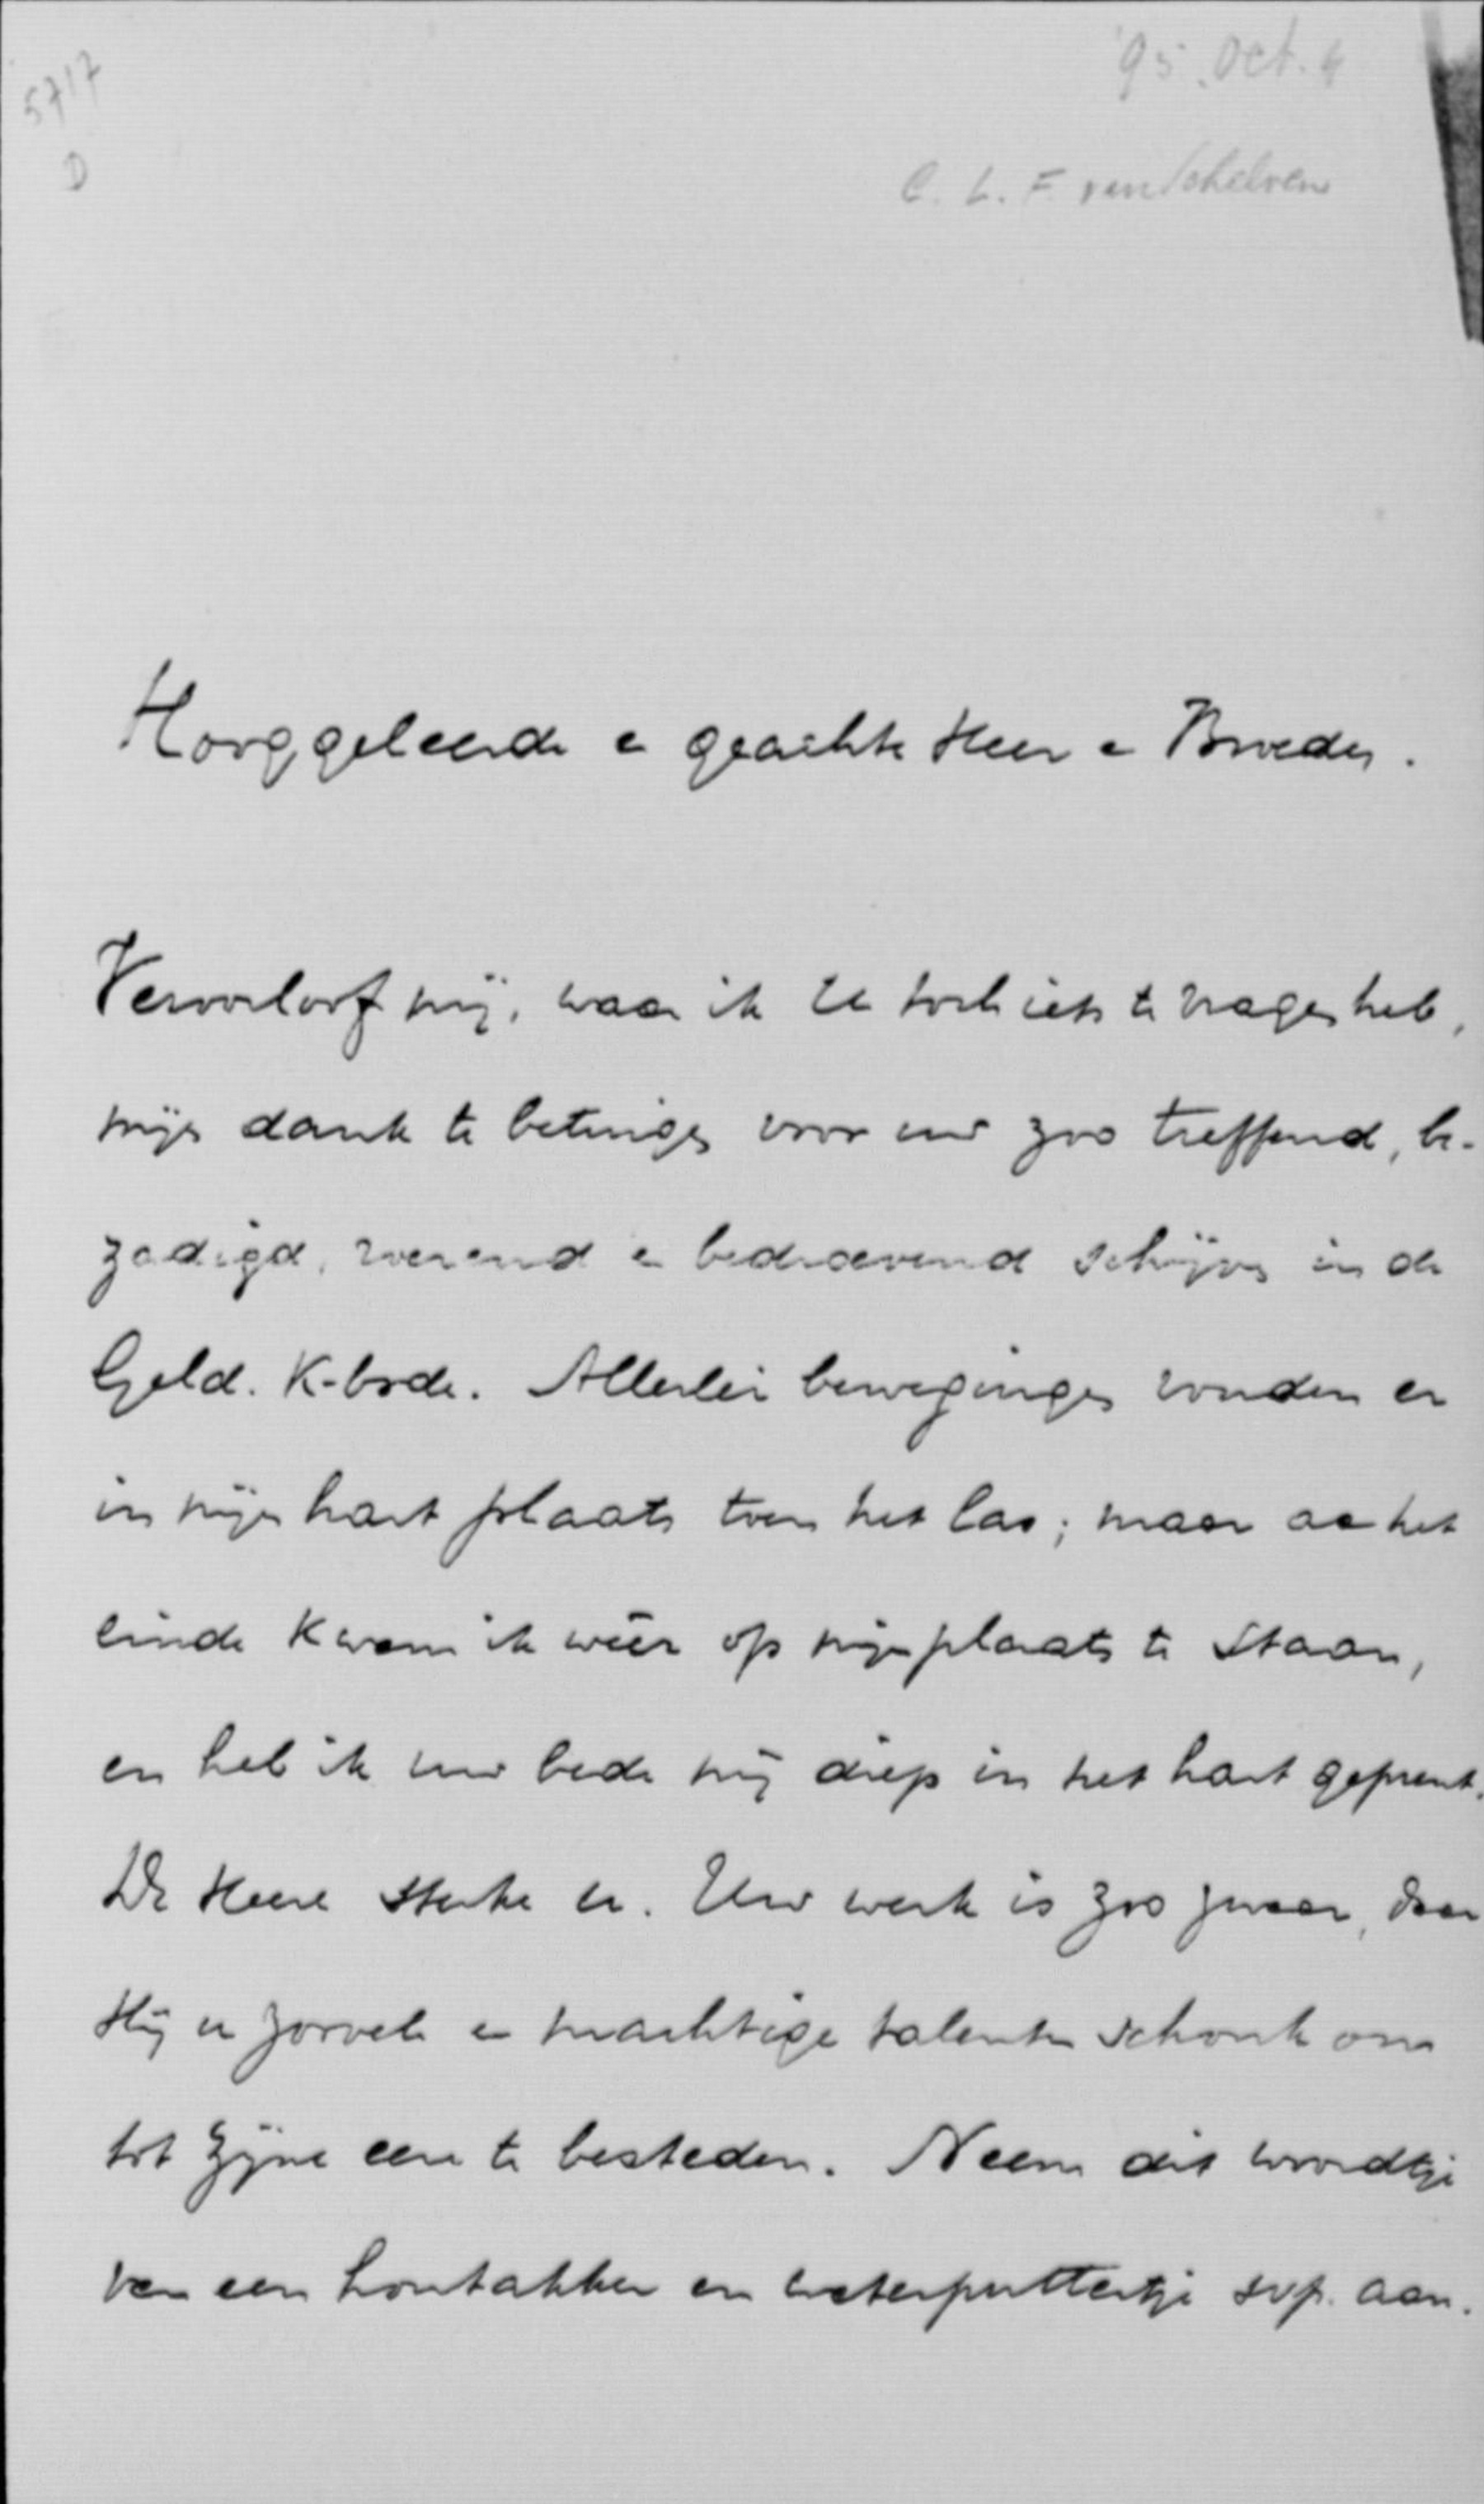 5717
D
'95. Oct. 4
C. L. F. van Schelven
Hooggeleerde e geachte Heer e Broeder.
Veroorloof mij, waar ik U toch iets te vragen heb,
mijn dank te betuigen voor uw zoo treffend, be-
zadigd, roerend e bedroevend schrijven in de
Geld. K-bode. Allerlei bewegingen vonden er
in mijn hart plaats toen het las; maar aa het
einde kwam ik weêr op mijn plaats te staan,
en heb ik uw bede mij diep in het hart geprent.
De Heere sterke u. Uw werk is zoo zwaar, daar
Hij u zoovele e machtige talenten schonk om
tot Zijne eere te besteden. Neem dit woordtje
van een houtakker en waterputtertje svp. aan.